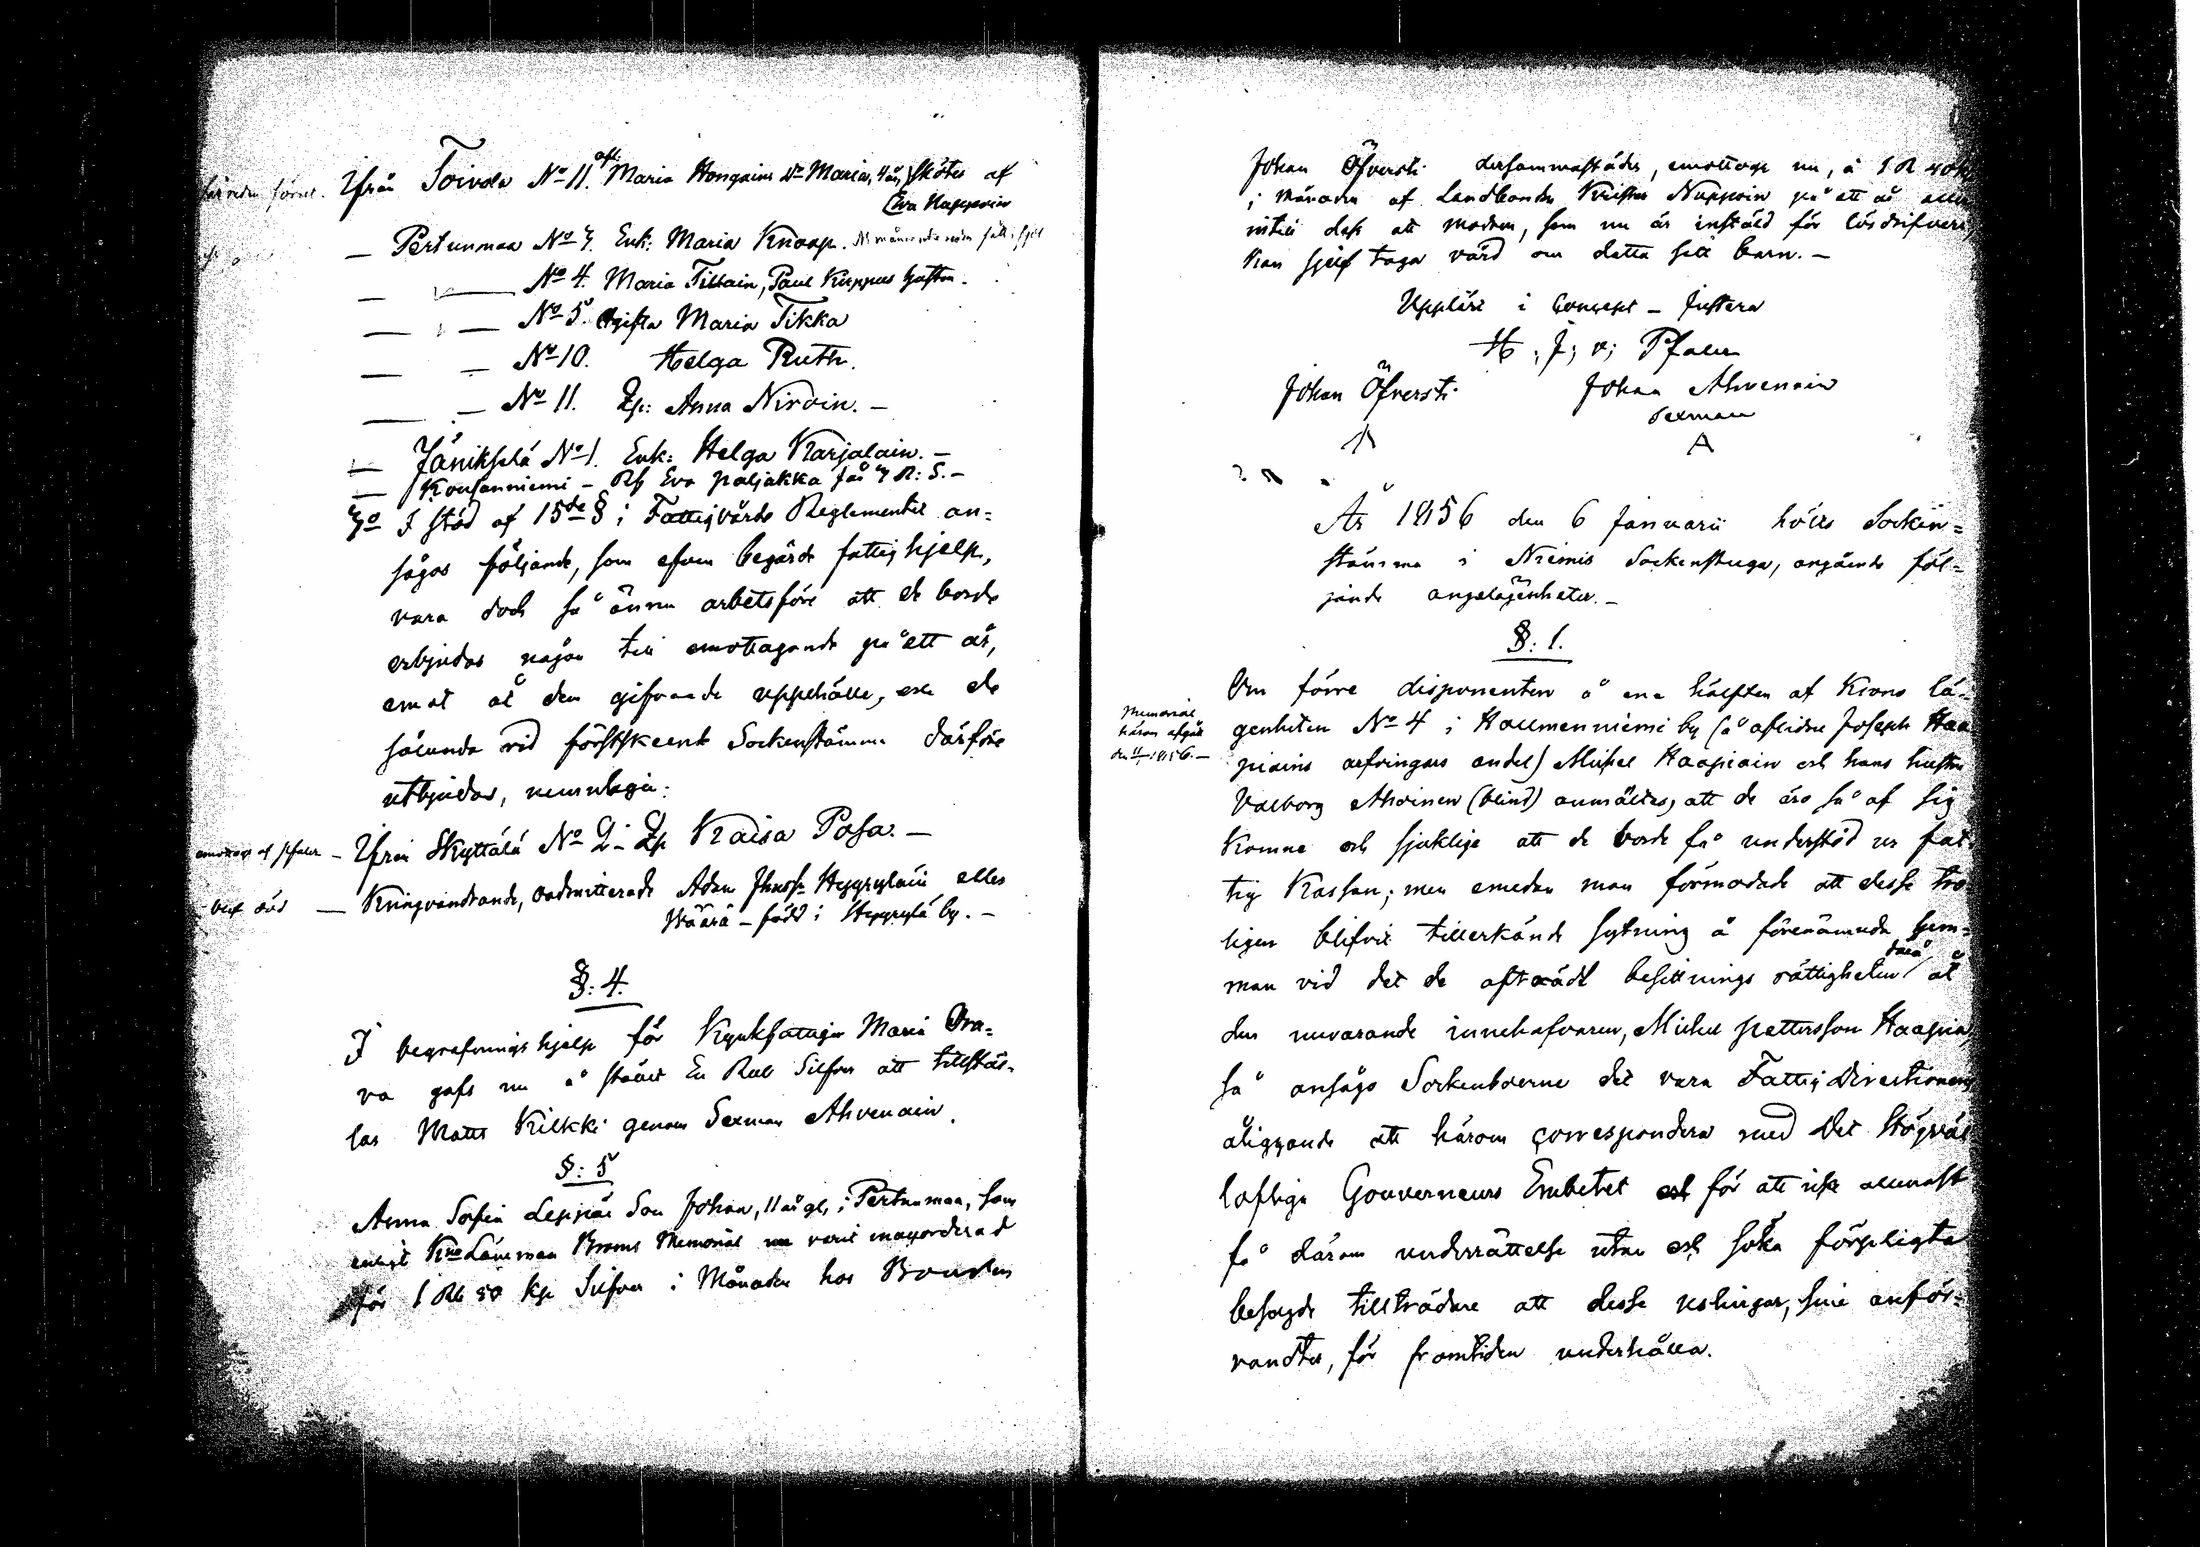 Ifrån Toivola No 11. afl. Maria Hongains dr Maria, 4 år, skötes af
Eva Happoin
— Pertunmaa No 7. Enk: Maria Knaap.
— No 4. Maria Tiitain, Paul Kuppas hustru.
— — No 5. Ogifta Maria Tikka
— — No 10. Helga Ruth.
— — No 11. Zp: Anna Nirvin. —
— Jänikselä No 1. Enk: Helga Karjalain. —
— Koussanniemi – Eva Paljakka får 7 R: S. —
7o I stöd af 15de § i Fattigvårds Reglementet an=
sågos följande, som äfven begärde fattighjelp,
vara dock så ännu arbetsföre att de borde
erbjudas någon till emottagande på ett år,
emot åt dem gifvande uppehälle, och de
sålunda vid förstskeende Sockenstämma därföre
utbjudas, nemnligen:
emottogs af Pfaler — Ifrån Skyttälä No 2 – Zp Kaisa Posa. —
blef död — Kringvandrande, oadmitterade Adam Hyyryläin eller
Wäärä – född i Hyyrylä by. —
§: 4.
I begrafningshjelp för Maria Ora=
va gafs nu å stället En Rub Silfver att tillstäl-
las Matts Kilkki genom Sexman Ahvenain.
§: 5
Anna Sofia Leppäs Son Johan, 11 år gl, i Pertunmaa, som
enligt Kno Länsman Broms Memorial nu varit inackorderad
för 1 Rb 50 Kp Silfver i Månaden hos Bonden
Johan Öfversti dersammastädes, emottogs nu, à 1 R 40 k
i månaden af Landbonden Krister Nuppoin på ett år eller
intill dess att modren, som nu är instäld för lösdrifveri,
kan sjelf taga vård om detta sitt barn. —
Uppläst i Concept – Justera
H. J. v; Pfaler
Johan Öfversti Johan Ahvenain
Sexman
År 1856 den 6 Januarii hölls Socken=
stämma i Niemis Sockenstuga, angående föl=
jande angelägenheter. —
§: 1.
Memorial
härom afgått
den 11/1 1856. —
Om förre disponenten å ena hälften af Krono lä-
genheten No 4 i Hallmenniemi by (å aflidne Joseph Haa
piains arfvingars andel) Mickel Haapiain och hans hustru
Valborg Ahoinen (blind) anmältes, att de äro så af sig
komne och sjuklige att de borde få understöd ur fat-
tig Kassan; men emedan man förmodade att desse tro
ligen blifvit tillerkände sytning å förenämnde hem=
man vid det de afträdt besittnings rättigheten derå åt
den nuvarande innehafvaren, Mickel Pettersson Haapiain,
så ansågo Sockneboerne det vara Fattig Direktionens
åliggande att härom correspondera med Det Högväl
loflige Gouverneurs Embetet och för att icke allenast
få därom underrättelse utan och söka förpligta
besagde tillträdare att desse uslingar, sine anför=
vandter, för framtiden underhålla.